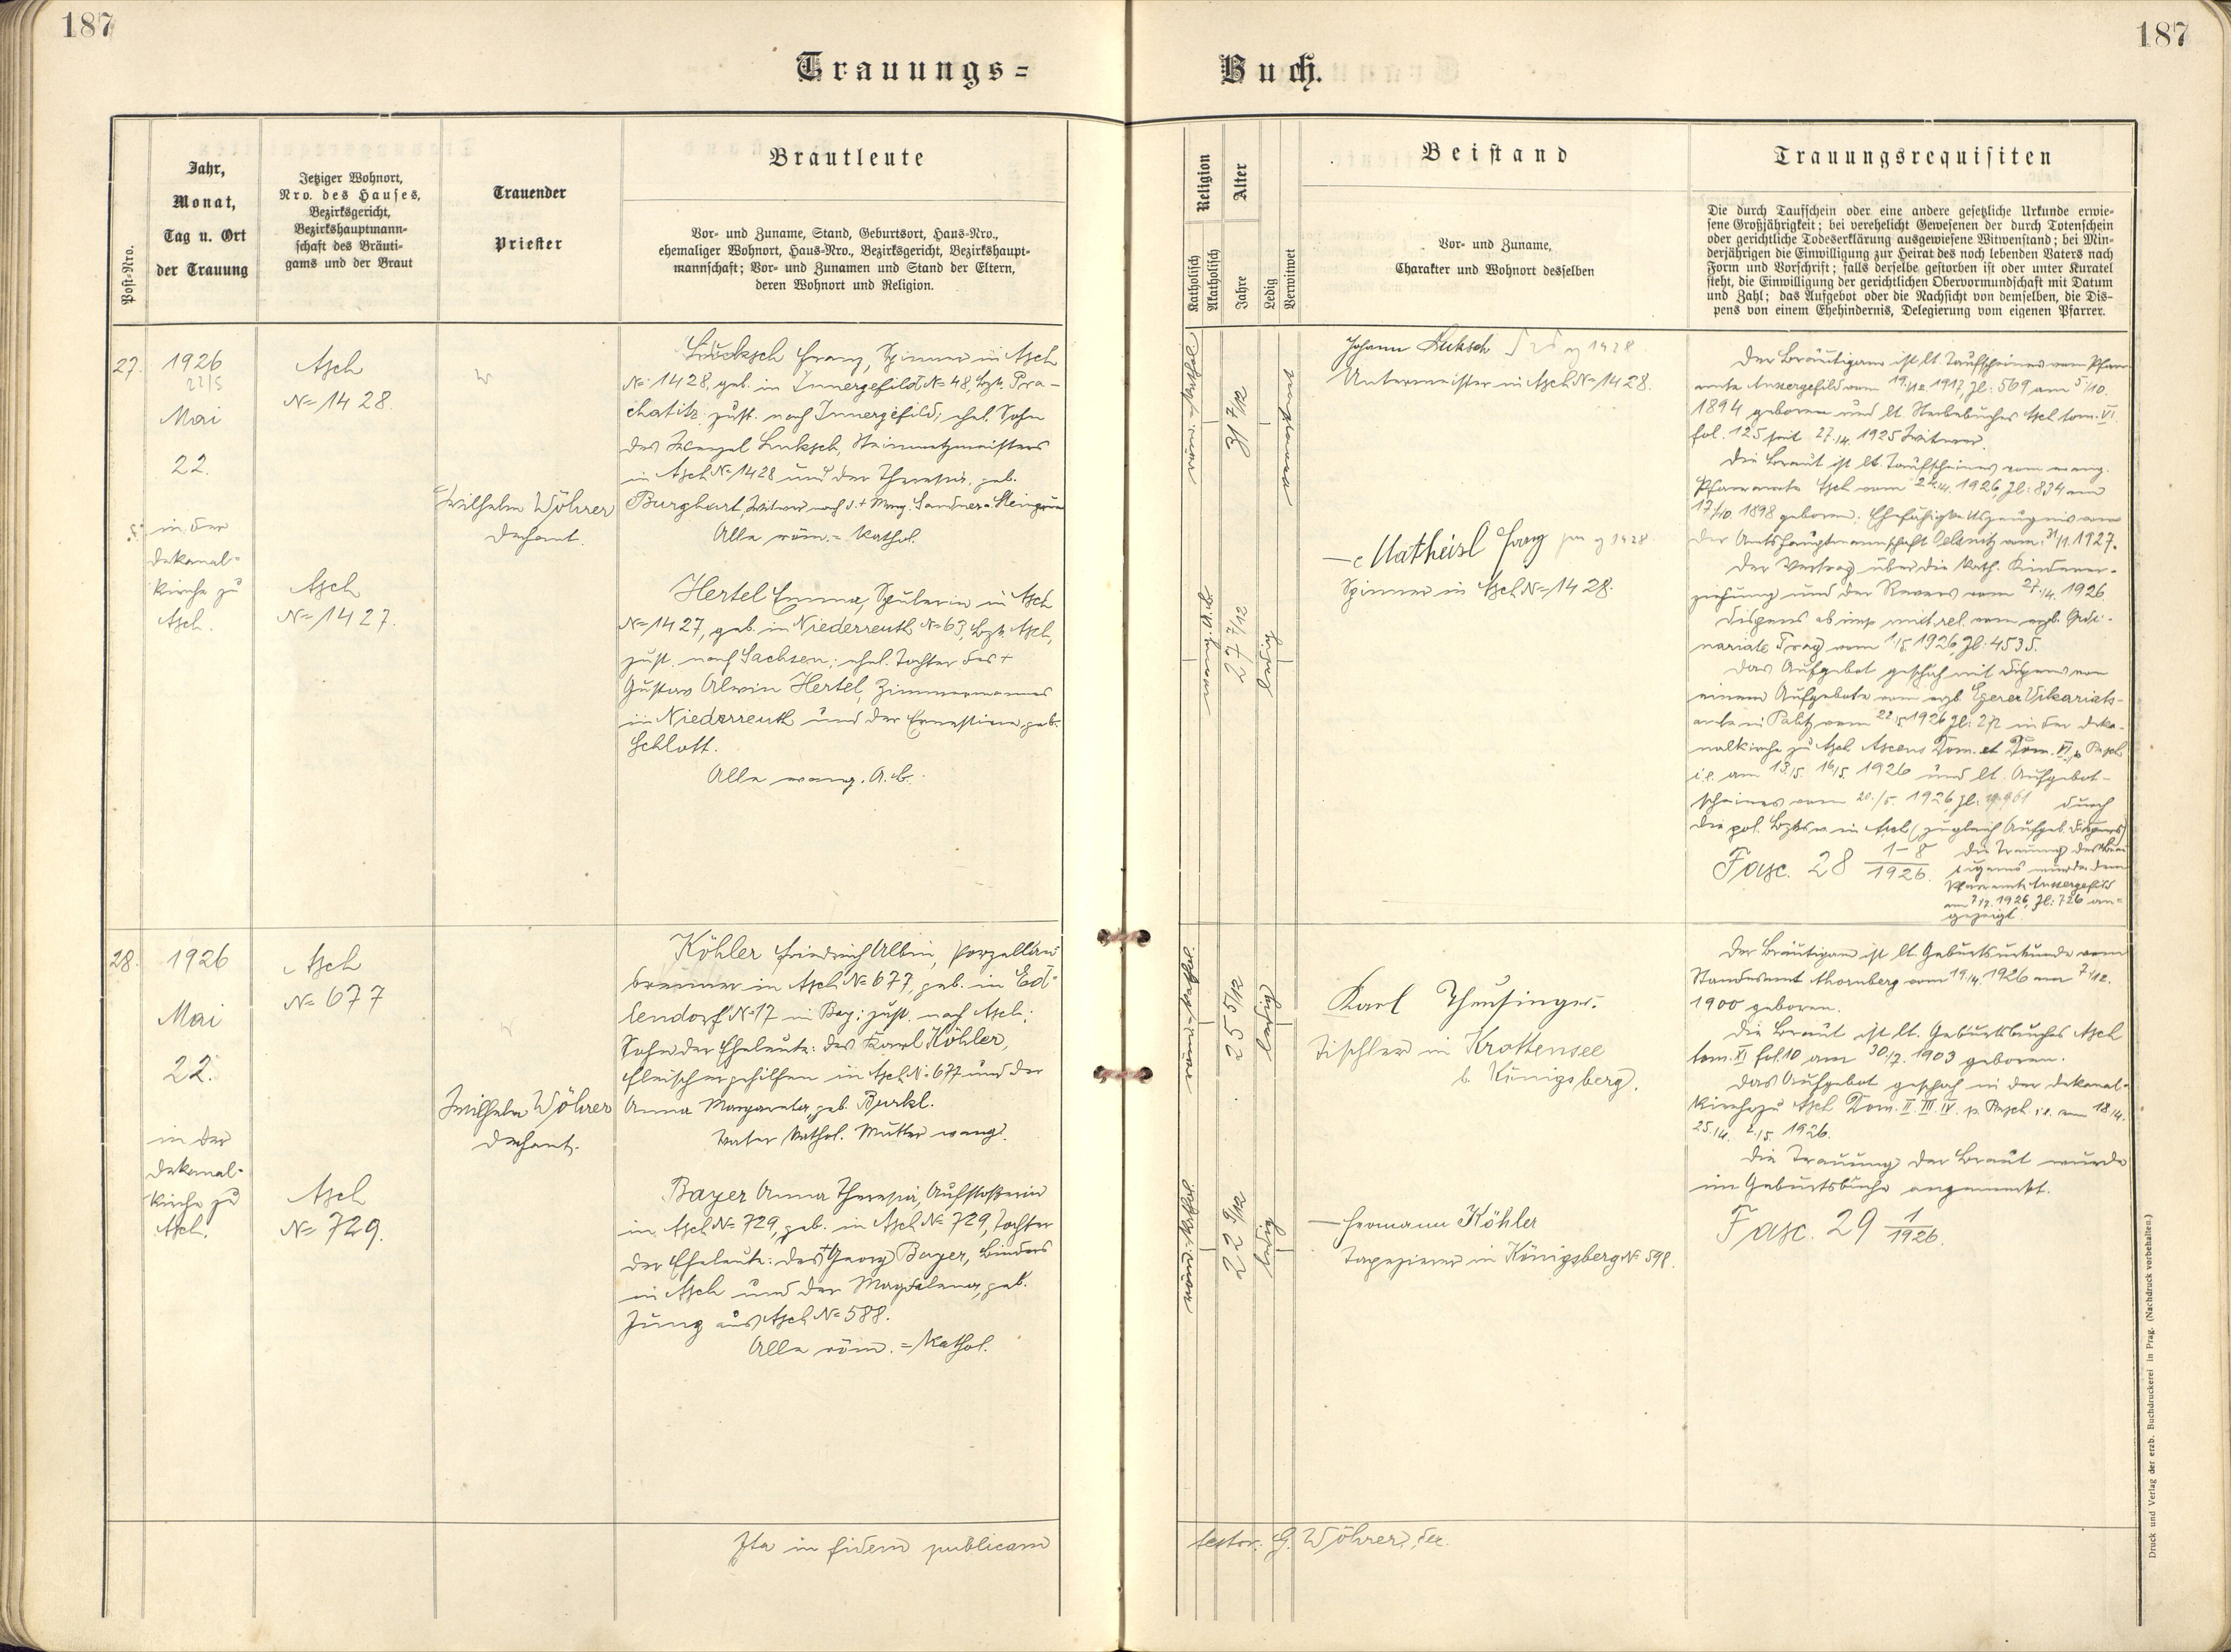 187
187
Trauungs=
Buch.
Post-Nro.
Jahr,
Monat,
Tag u. Ort
der Trauung
Jetziger Wohnort,
Nro. des Hauses,
Bezirksgericht,
Bezirkshauptmann-
schaft des Bräuti-
gams und der Braut
Trauender
Priester
Brautleute
Vor- und Zuname, Stand, Geburtsort, Haus-Nro.,
ehemaliger Wohnort, Haus-Nro., Bezirksgericht, Bezirkshaupt-
mannschaft; Vor- und Zunamen und Stand der Eltern,
deren Wohnort und Religion.
Religion
Katholisch
Akatholisch
Alter
Jahre
Ledig
Verwitwet
Beistand
Vor- und Zuname,
Charakter und Wohnort desselben
Trauungsrequisiten
Die durch Taufschein oder eine andere gesetzliche Urkunde erwie-
sene Großjährigkeit; bei verehelicht Gewesenen der durch Totenschein
oder gerichtliche Todeserklärung ausgewiesene Witwenstand; bei Min-
derjährigen die Einwilligung zur Heirat des noch lebenden Vaters nach
Form und Vorschrift; falls derselbe gestorben ist oder unter Kuratel
steht, die Einwilligung der gerichtlichen Obervormundschaft mit Datum
und Zahl; das Aufgebot oder die Nachsicht von demselben, die Dis-
pens von einem Ehehindernis, Delegierung vom eigenen Pfarrer.
27.
1926
22/5
Mai
22.
in der
Dekanal-
kirche zu
Asch.
Asch
N= 1428.
Asch
N= 1427.
Wilhelm Wöhrer
Dechant.
Lucksch Franz, Spinner in Asch
N= 1428, geb. in Innergefild N= 48, Bzk. Pra-
chatitz, zust. nach Innergefild; ehel. Sohn
des Wenzel Luksch, Steinmetzmeisters
in Asch N= 1428 und der Theresia, geb.
Burghart, Witwer nach d. + Marg. Sandner-Steingrün
Alle röm.= kathol.
Hertel Emma, Spulerin in Asch
N= 1427, geb. in Niederreuth N= 63, Bzk. Asch,
zust. nach Sachsen; ehel. Tochter des +
Gustav Alwin Hertel, Zimmermannes
in Niederreuth und der Ernestine, geb.
Schlott.
Alle evang. A.B.
31 7/12
27 7/12
ledig
Johann Luksch
1428
Untermeister in Asch N= 1428.
Matheisl Franz
1428
Spinner in Asch N= 1428.
Der Bräutigam ist lt. Taufscheines vom Pfarr-
amte Aussergefild vom 19./12. 1917, Zl: 569 am 5./10.
1894 geboren und lt. Sterbebuches Asch tom. VI.
fol. 125 seit 27./4. 1925 Witwer.
Die Braut ist lt. Taufscheines vom evang.
Pfarramte Asch vom 1926, Zl: 834 am
17./10. 1898 geboren; Ehefähigkeitszeugnis von
der Amtshauptmannschaft Oelsnitz vom 31/1. 1927.
Der Vertrag über die kath. Kinderer-
ziehung und der Revers vom 27./4. 1926.
Dispens ab imp. mixt. rel. vom erzb. Ordi-
nariate Prag vom 1/5. 1926, Zl: 4535.
Das Aufgebot geschah mit Dispens von
einem Aufgebote vom erzb. Egerer Vikariats-
amte in Palitz vom 22./5. 1926 Zl: 272 in der Deka-
nalkirche zu Asch Ascens Dom. et Dom. VI. p. Pasch.
i.e. am 13./5. 16/5. 1926 und lt. Aufgebot-
scheines vom 20./5. 1926, Zl: durch
die pol. Bzksv. in Asch (zugleich Aufgeb. Dispens)
Fasc. 28 1-8/1926.
Die Trauung des Bräu-
tigams wurde dem
Pfarramte Aussergefild
am 1926, Zl: 726 an-
gezeigt.
28.
1926
Mai
22.
in der
Dekanal-
kirche zu
Asch.
Asch
N= 677
Asch
N= 729.
Wilhelm Wöhrer
Dechant.
Köhler Friedrich Albin, Porzellan-
brenner in Asch N= 677, geb. in Ed-
lendorf N= 17 in Bay; zust. nach Asch;
Sohn der Eheleute: des Karl Köhler,
Fleischergehilfen in Asch N= 677 und der
Anna Margareta, geb. Burkl.
Vater kathol. Mutter evang.
Bayer Anna Theresia, Aufstoßerin
in Asch N= 729, geb. in Asch N= 729, Tochter
der Eheleute: des + Georg Bayer, Binders
in Asch und der Magdalena, geb.
Jung aus Asch N= 588.
Alle röm.= kathol.
25 5/12
ledig
22 9/12
ledig
Karl Theusinger.
Tischler in Krottensee
b. Königsberg.
Hermann Köhler
Tapezierer in Königsberg N= 598.
Der Bräutigam ist lt. Geburtsurkunde vom
Standesamt vom 19./4. 1926 am 7/12.
1900 geboren.
Die Braut ist lt. Geburtsbuches Asch
tom. XI fol. 10 am 30/7. 1903 geboren.
Das Aufgebot geschah in der Dekanal-
kirche zu Asch Dom. II. III. IV. p. Pasch. i.e. am 18./4.
25./4. 2./5. 1926.
Die Trauung der Braut wurde
im Geburtsbuche angemerkt.
Fasc. 29 1/1926.
Ita in fidem publicam
testor: G. Wöhrer, Dec.
Druck und Verlag der erzb. Buchdruckerei in Prag. (Nachdruck vorbehalten.)